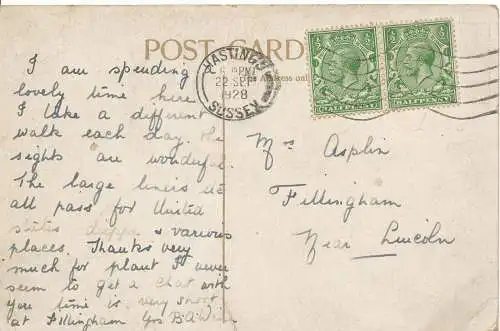 POST CARD
HASTINGS
22 SEP
1928
SUSSEX
I am spending
lovely time here
I take a different
walk each day. the
sights are wonderful
The large liners etc
all pass for United
states & various
places. Thanks very
much for plant I never
seem to get a chat with
you time is very short
at Fillingham yrs
Mrs Asplin
Fillingham
Near Lincoln